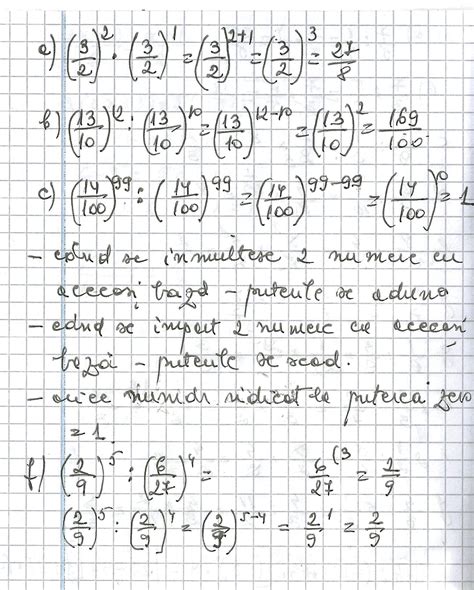 a) (3/2)^2 · (3/2)^1 = (3/2)^{2+1} = (3/2)^3 = 27/8
b) (13/10)^{12} : (13/10)^{10} = (13/10)^{12-10} = (13/10)^2 = 169/100
c) (14/100)^{99} : (14/100)^{99} = (14/100)^{99-99} = (14/100)^0 = 1
- când se inmultesc 2 numere cu
aceeași bază - puterile se aduna
- când se impart 2 numere cu aceeași
bază - puterile se scad.
- orice număr ridicat la puterea zero
= 1.
f) (2/9)^5 : (6/27)^4 = 6/27^{(3} = 2/9
(2/9)^5 : (2/9)^4 = (2/9)^{5-4} = 2/9^1 = 2/9